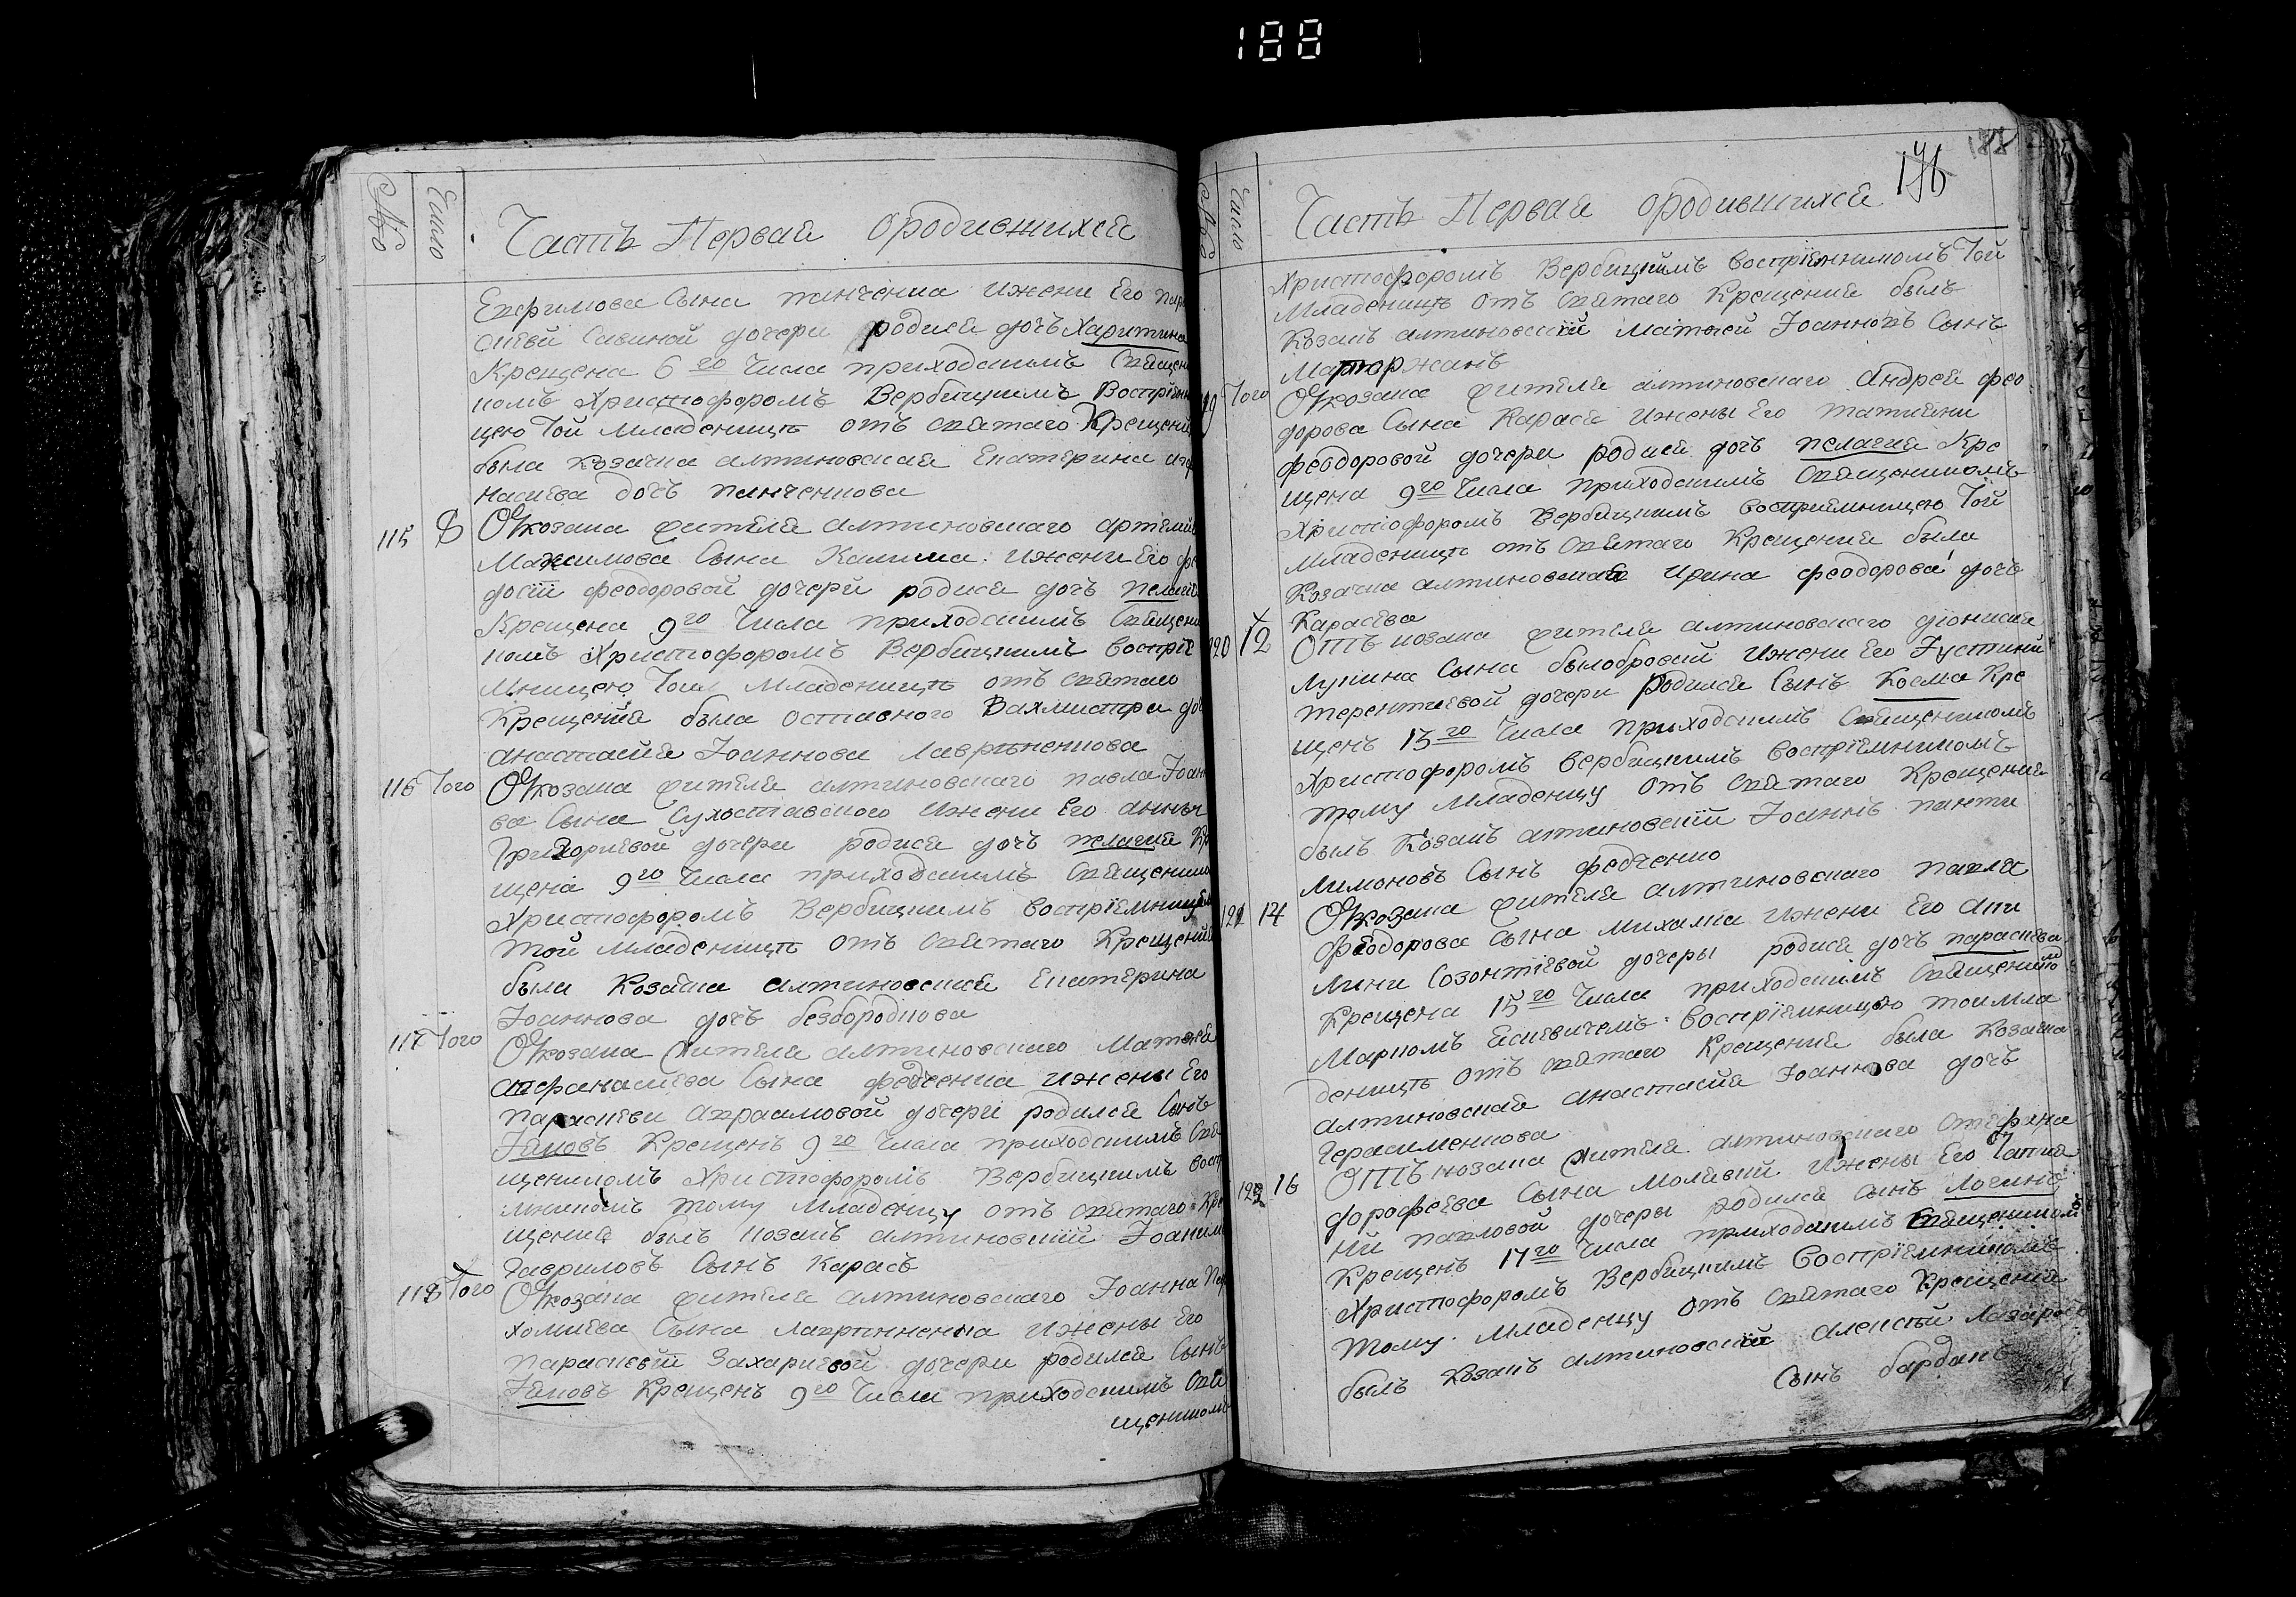 188
№
Число
Часть Первая ородившихся
Евфимова Сына панченка ижени Его
Савиной дочери родися дочь Харитина
Крещена 6го Числа приходскимъ
номъ Христофоромъ Вербицкимъ
цею той младеницѣ отъ святаго Крещения
была козачка алтиновская Екатерина
насиева дочь панченкова
115 8 От козака жителя алтиновского артемия
Максимова Сына ижени Его
досіи феодоровой дочери родися дочь пелагия
Крещена 9го Числа приходскимъ
номъ Христофоромъ Вербицкимъ воспріе
мницею младеницѣ отъ святаго
Крещения была оставного Вахмистра
анастасия Іоаннова Лаврѣненкова
116 Того От козака жителя алтиновского павла
ва Сына Сухоставского ижени Его анны
Григориевой дочери родися дочь пелагия Кре
щена 9го Числа приходскимъ
Христофоромъ Вербицкимъ воспріемницею
той младеницѣ отъ святаго Крещения
была козачка алтиновская Екатерина
Іоаннова дочь безбородкова
117 Того От козака жителя алтиновского Матфея
Сына федченка ижены Его
параскеви авраамовой дочери родился Сынъ
Іаковъ Крещенъ 9го Числа приходскимъ Свя
щеникомъ Христофоромъ Вербицкимъ
мникомъ тому младенцу отъ святаго Кре
щения былъ козакъ алтиновский Іоаннъ
гавриловъ Сынъ Карась
118 Того От козака жителя алтиновского Іоанна
хомиева Сына лаврѣненка ижены Его
параскевіи Захариевой дочери родился Сынъ
Іаковъ Крещенъ 9го Числа приходскимъ Свя
щеникомъ
188
176
№
Число
Часть Первая ородившихся
Христофоромъ Вербицкимъ воспріемникомъ той
младеницѣ отъ святаго Крещения былъ
козакъ алтиновский матфей Іоанновъ Сынъ
119 Того От козака жителя алтиновского андрея фео
дорова Сына Карася ижены Его татияни
феодоровой дочери родися дочь пелагия Кре
щена 9го Числа приходскимъ священикомъ
Христофоромъ Вербицкимъ воспріемницею той
младеницѣ отъ святаго Крещения была
козачка алтиновская ирина феодорова дочь
Карасева
120 12 Отъ козака жителя алтиновского діонисия
лукина Сына былобровий ижени Его Іустинии
терентиевой дочери родился Сынъ Косма Кре
щенъ 13го Числа приходскимъ священикомъ
Христофоромъ вербицкимъ воспріемникомъ
тому младенцу отъ святаго Крещения
былъ козакъ алтиновскій Іоаннъ панте
лимоновъ Сынъ федченко
121 14 От козака жителя алтиновского павла
феодорова Сына михалка ижени Его аки
лини Созонтіевой дочеры родися дочь параскева
Крещена 15го Числа приходскимъ священикомъ
Маркомъ воспріемницею той мла
деницѣ отъ святаго Крещения была козачка
алтиновская анастасия Іоаннова дочь
герасименкова
122 16 Отъ козака жителя алтиновского стефана
дорофеева Сына ижены Его Тапия
ни павловой дочеры родился сынъ логинъ
Крещенъ 17го Числа приходскимъ священикомъ
Христофоромъ Вербицкимъ воспріемникомъ
тому младенцу отъ святаго Крещения
былъ козакъ алтиновский алексей лазаревъ
Сынъ барданъ